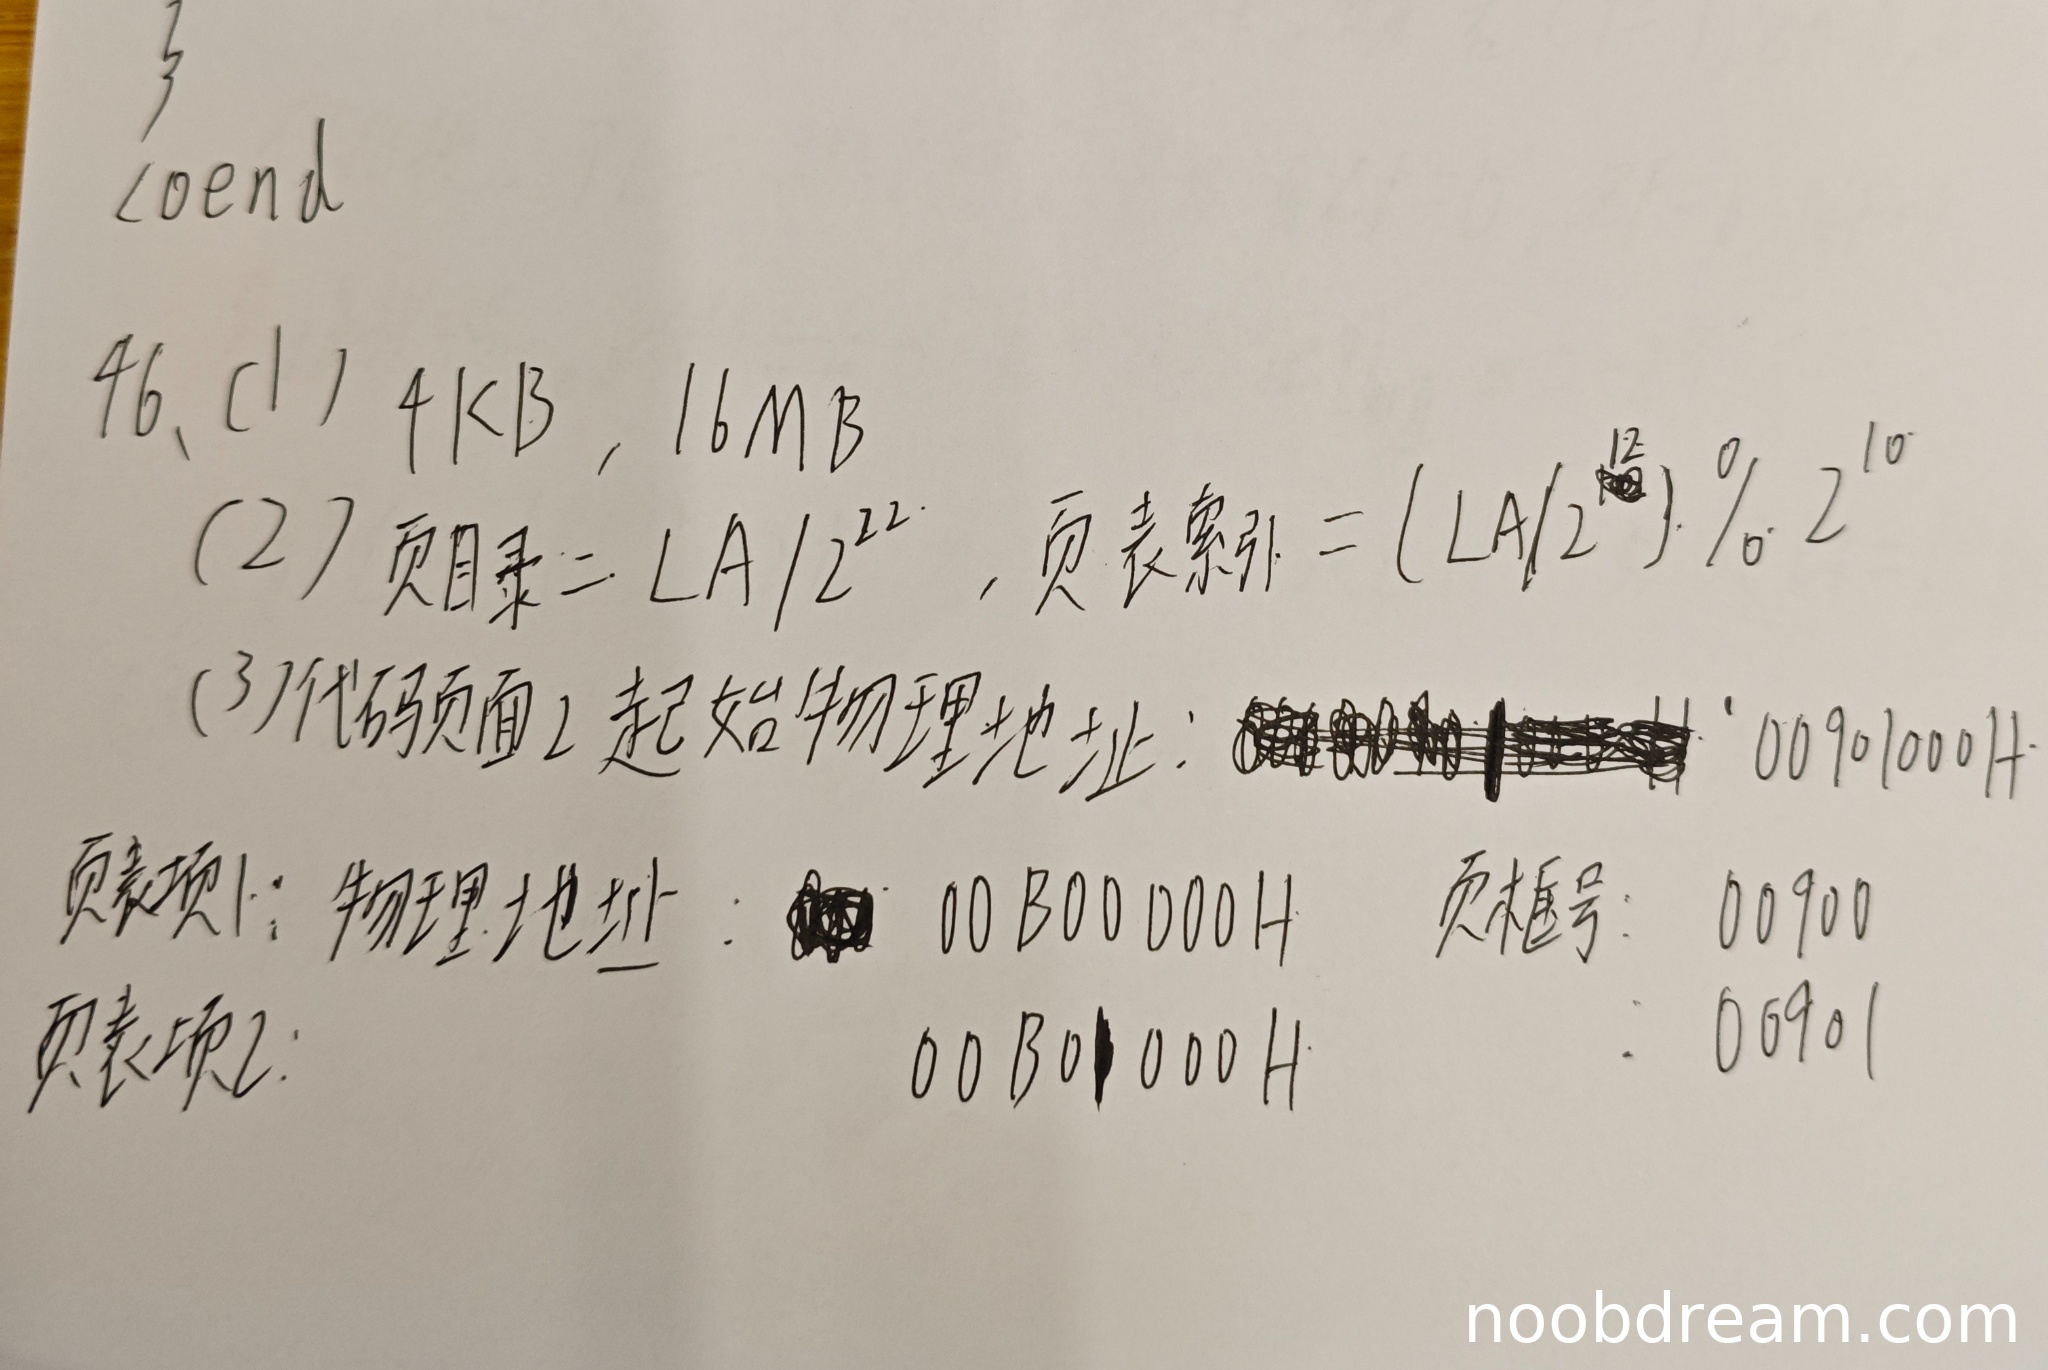 }
}
coend
46、(1) 4KB, 16MB
(2) 页目录 = LA/2^22, 页表索引 = (LA/2^12) % 2^10
(3) 代码页面2起始物理地址: 00901000H
页表项1: 物理地址: 00B00000H 页框号: 00900
页表项2: 00B01000H : 00901
noobdream.com